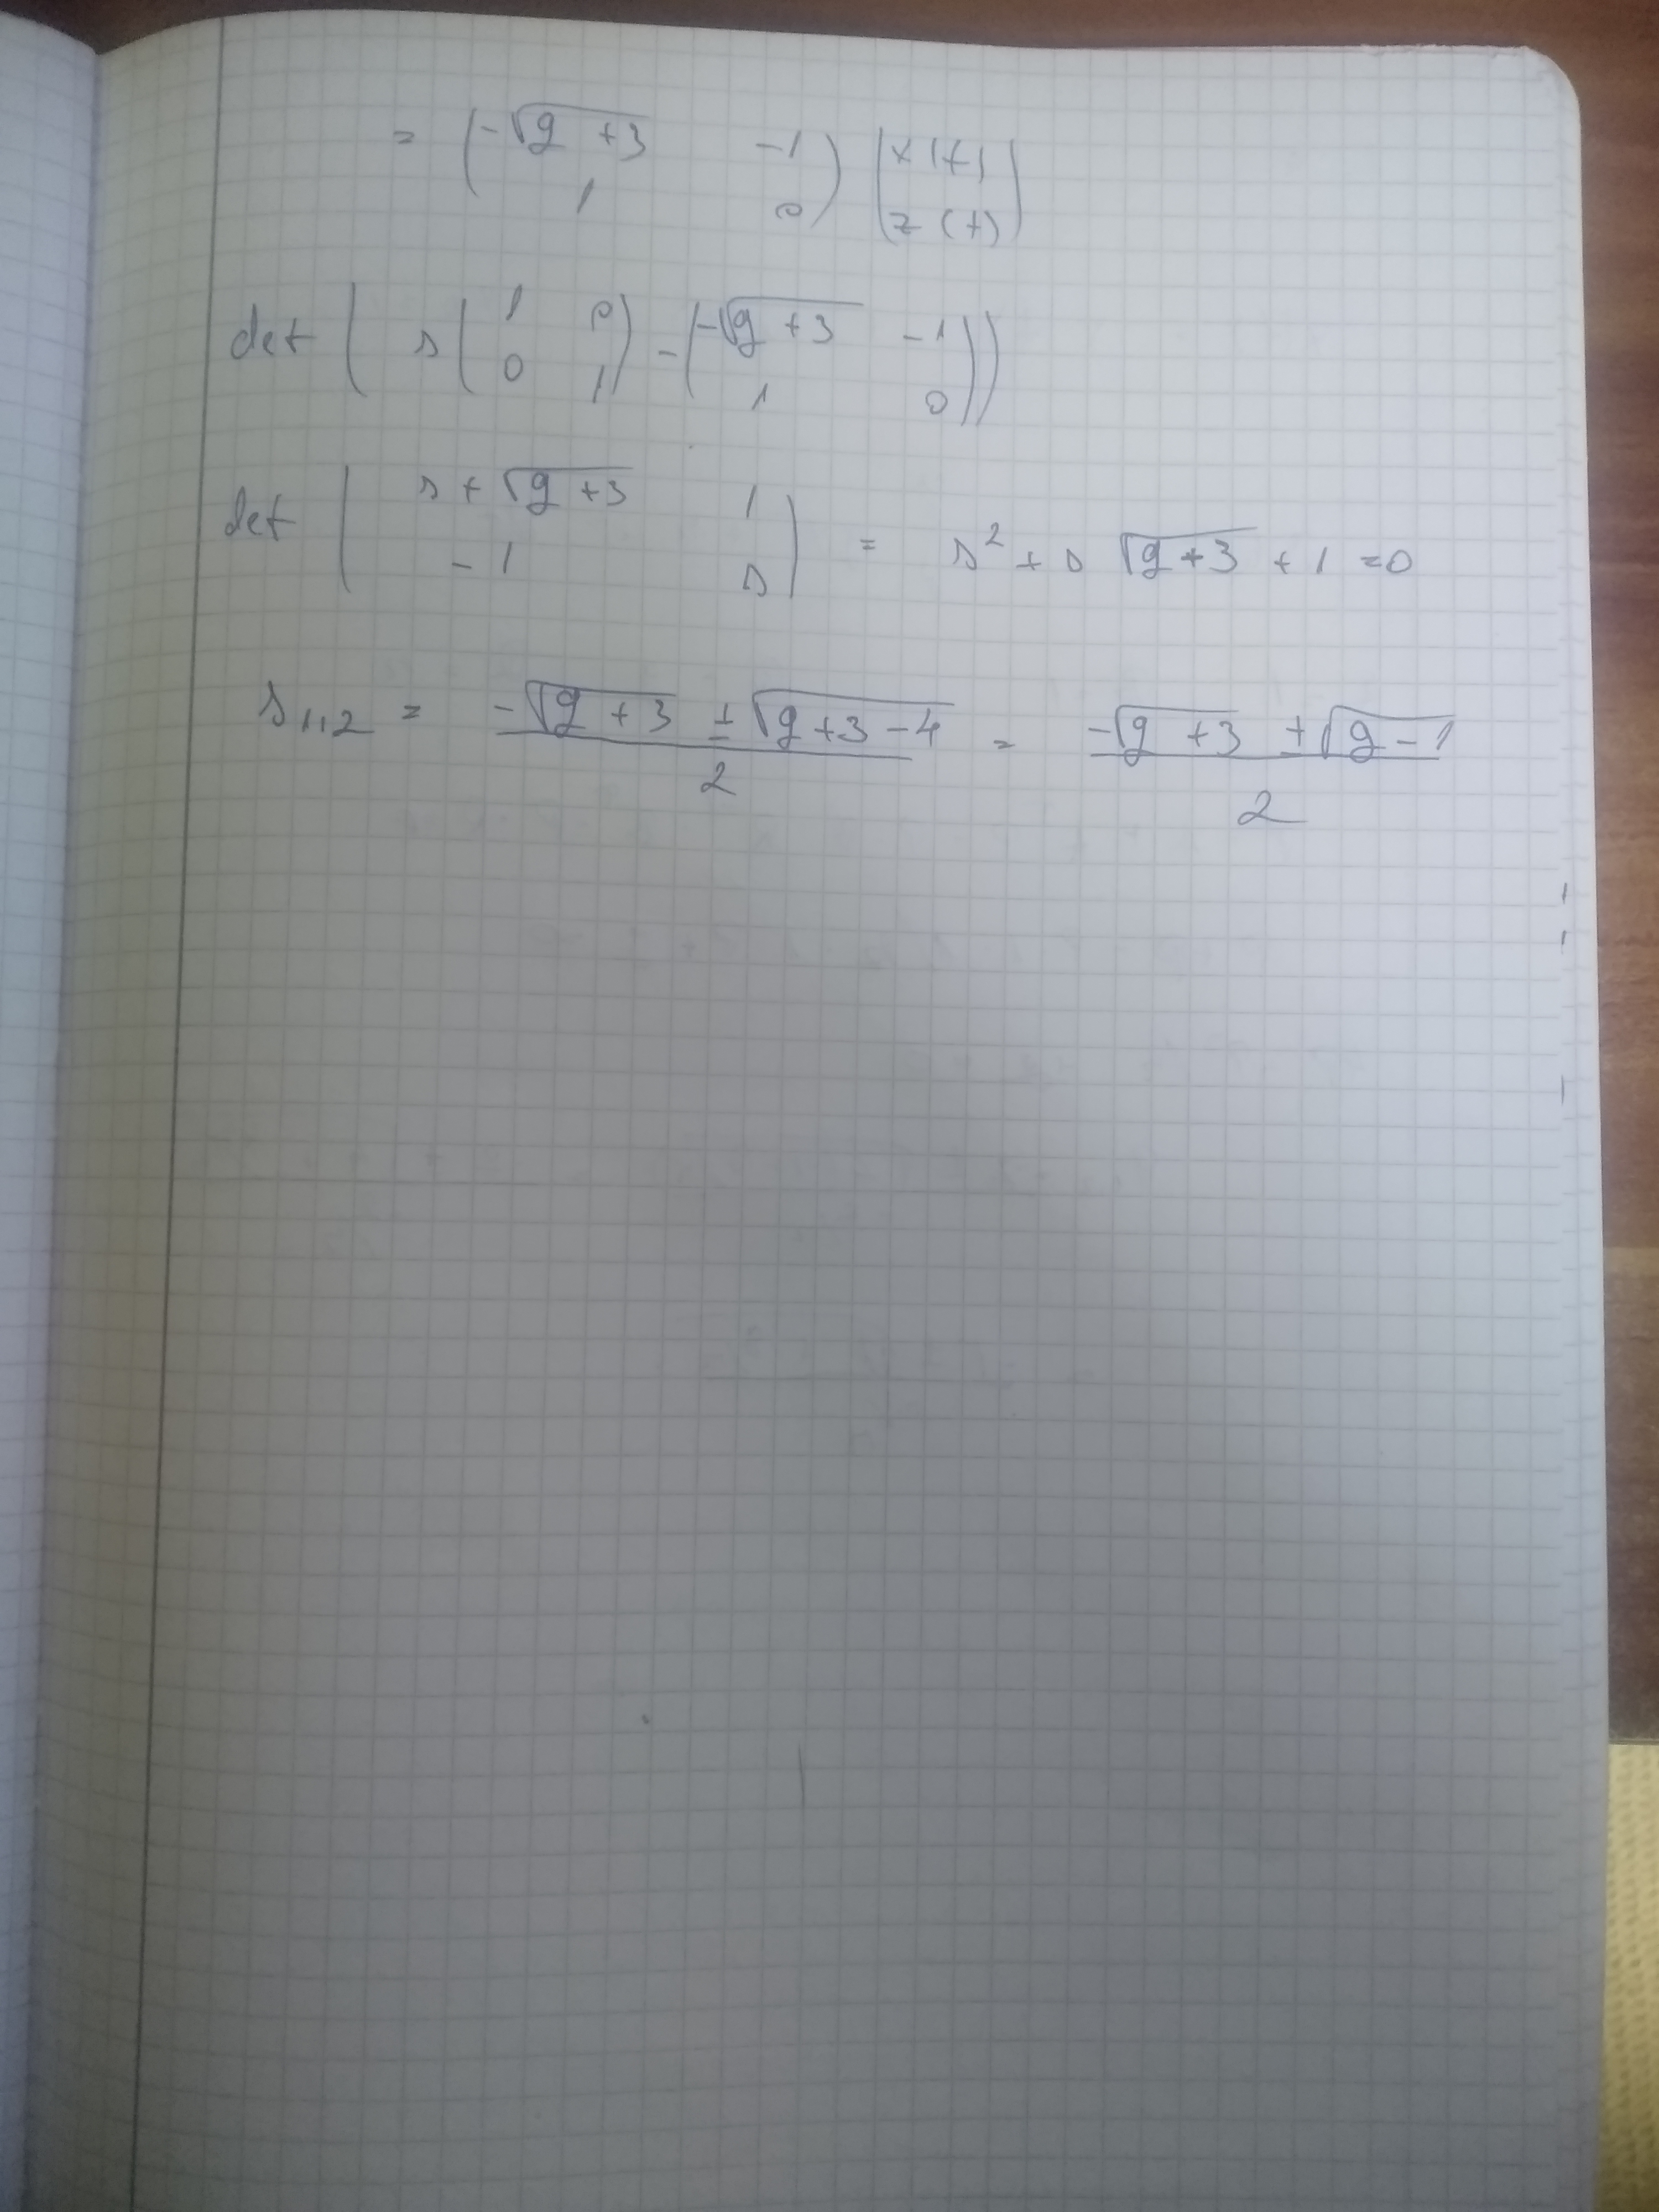 = ( -√(g + 3) -1 ) ( x(t) )
( 1 0 ) ( z (t) )
det ( s ( 1 0 ) - ( -√(g + 3) -1 ) )
( 0 1 ) ( 1 0 )
det ( s + √(g + 3) 1 )
( -1 s ) = s² + s √(g + 3) + 1 = 0
s1,2 = (-√(g + 3) ± √(g + 3 - 4)) / 2 = (-√(g + 3) ± √(g - 1)) / 2